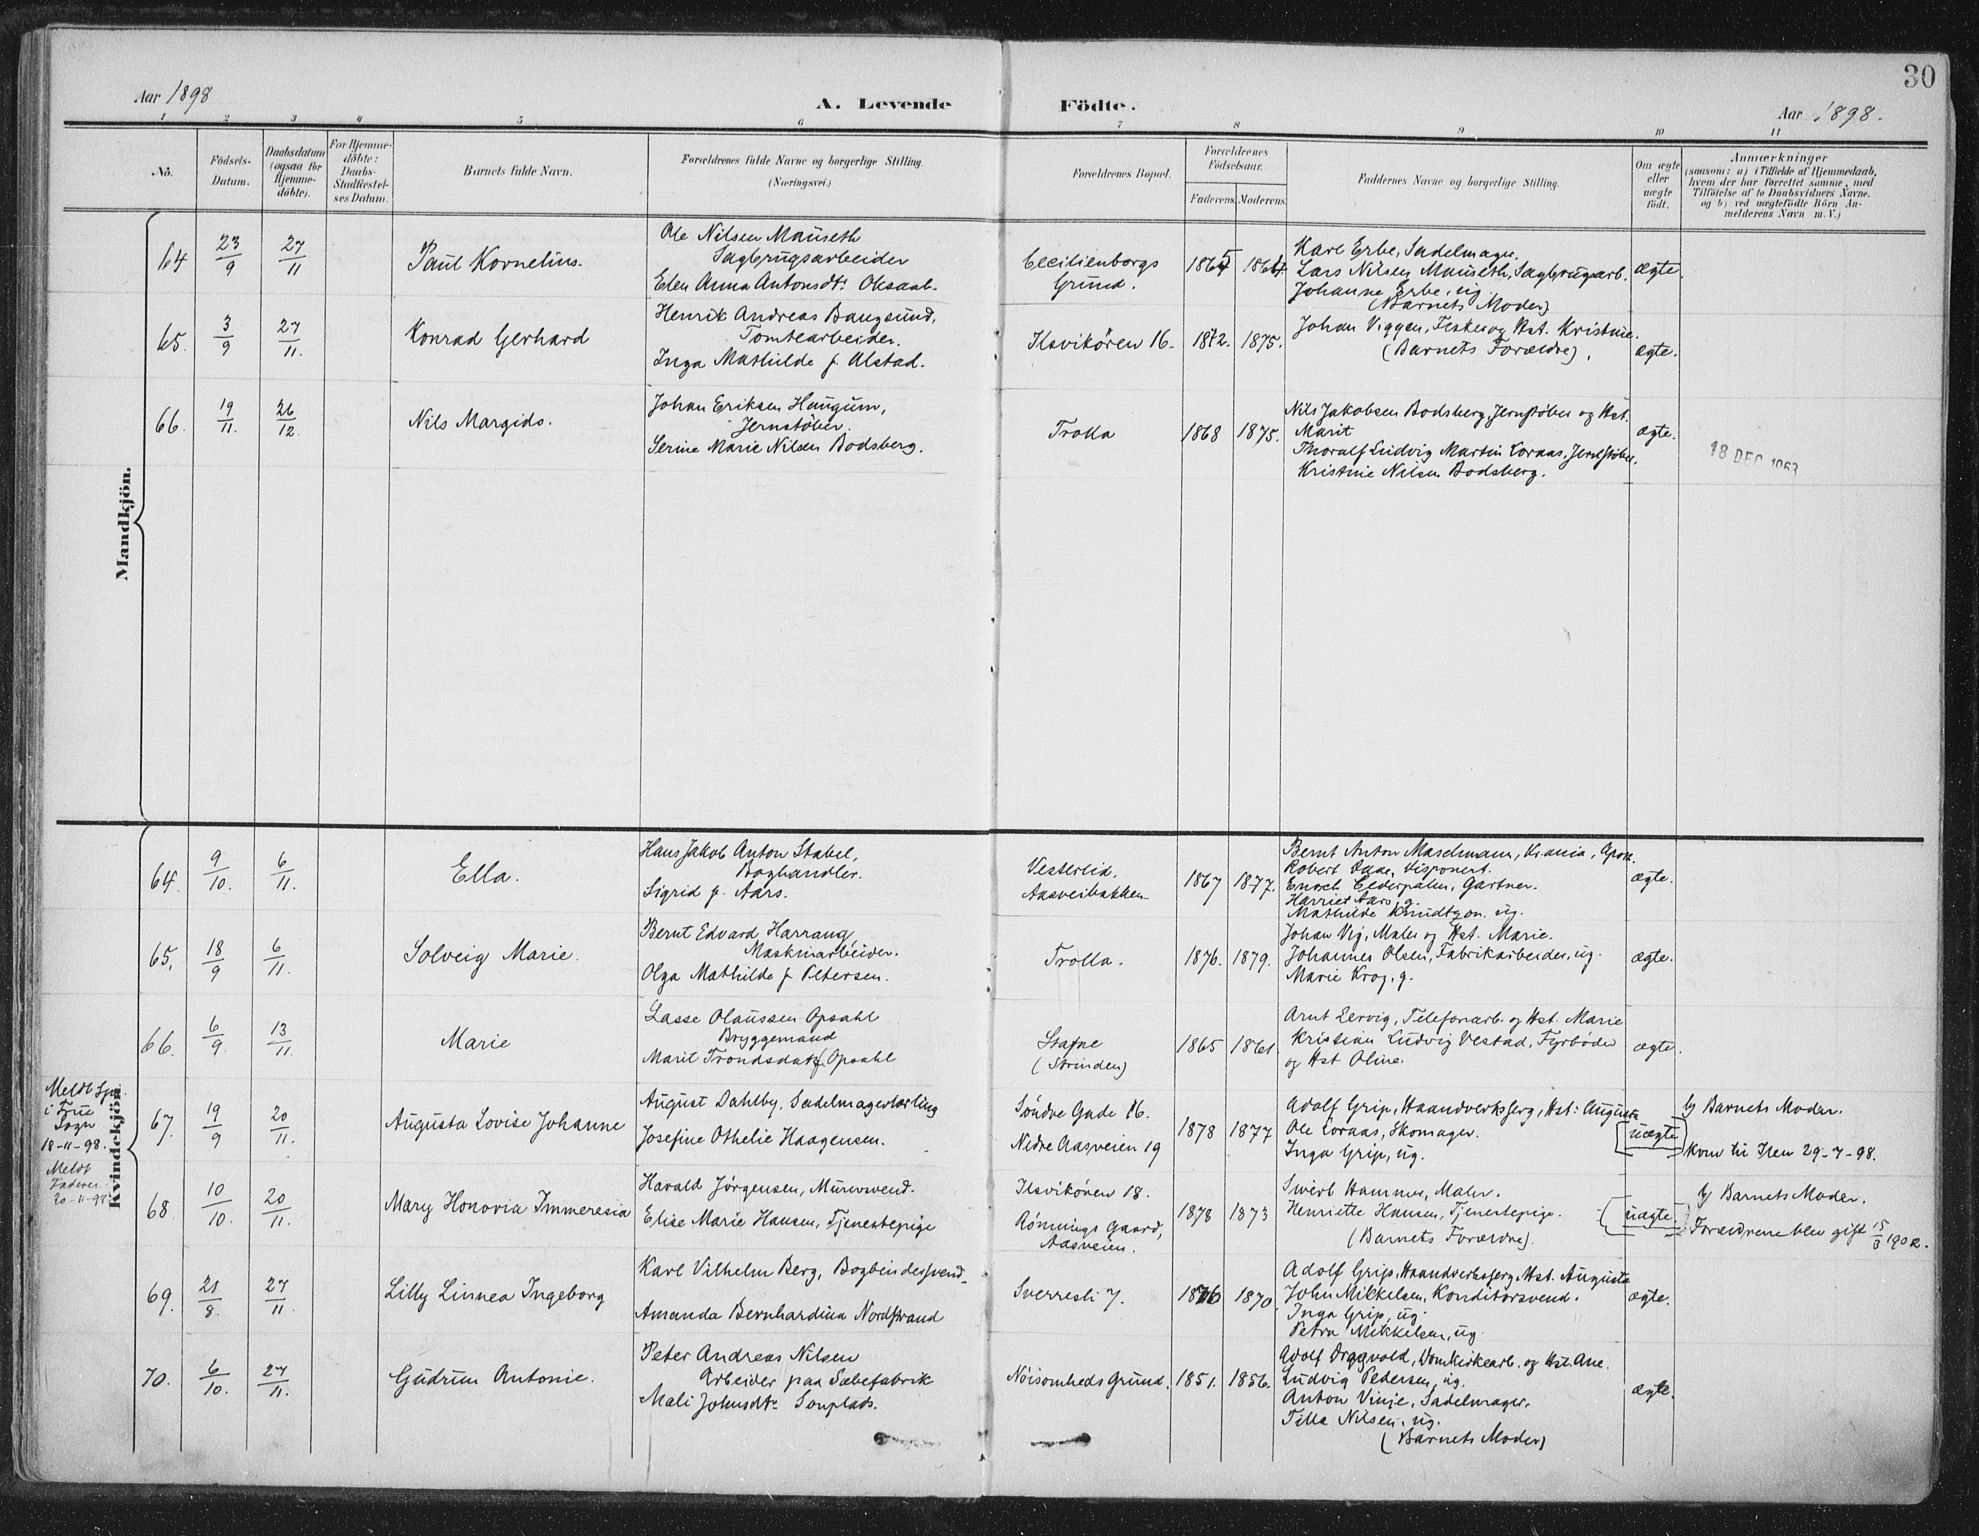 30
Aar 1898
A. Levende Födte.
Aar 1898.
1 2 3 4 5 6 7 8 9 10 11
No.
Födsels-Datum.
Daabsdatum (ogsaa for Hjemmedöbte).
For Hjemmedöbte: Daabs-Stadfæstelses Datum.
Barnets fulde Navn.
Forældrenes fulde Navne og borgerlige Stilling. (Næringsvei.)
Forældrenes Bopæl.
Forældrenes Födselsaar.
Faderens. Moderens.
Faddernes Navne og borgerlige Stilling.
Om ægte eller uægte födt.
Anmærkninger
(saasom: a) (Tilfælde af Hjemmedaab,
hvem der har forrettet samme, med
Tilföielse af to Daabsvidners Navne.
og b) ved uægtefödte Börn An-
melderens Navn m. V.)
Mandkjön.
64 23/9 27/11 Paul Kornelius.
Ole Nilsen Mauseth
Sagbrugsarbeider
Elen Anna Antonsdt. Oksaab.
Cecilienborgs
Grund.
1865 1864
Karl Erbe, Sadelmager.
Lars Nilsen Mauseth, Sagbrugsarb.
Johanne Erbe, ug.
(Barnets Moder)
ægte.
65. 3/9 27/11. Konrad Gerhard
Henrik Andreas Bangsund,
Tomtearbeider.
Inga Mathilde f. Alstad.
Ilsvikören 16. 1872. 1875.
Johan Viggen, Fisker og Hst. Kristine.
(Barnets Forældre).
ægte.
66. 19/11. 26/12. Nils Margido.
Johan Eriksen Haugum,
Jernstöber.
Serine Marie Nilsen Bodsberg.
Trolla 1868 1875.
Nils Jakobsen Bodsberg, Jernstöber og Hst.
Marit
Thoralf Ludvig Martin Loraas, Jernstöber,
Kristine Nilsen Bodsberg.
ægte.
18 DEC 1963
Kvindekjön.
64. 9/10. 6/11. Ella.
Hans Jakob Anton Stabel,
Boghandler.
Sigrid f. Aars.
Vesterlid.
Aasveibakken
1867 1877.
Bernt Anton Maschmann, Krania, Apoth.
Robert Daae, Disponent.
Enoch Cederpalm, Gartner.
Harriet Aars, g.
Mathilde Knudtzon. ug.
ægte.
65. 18/9 6/11. Solveig Marie.
Bernt Edvard Harrang
Maskinarbeider.
Olga Mathilde f. Petersen.
Trolla. 1876. 1879.
Johan Vig, Maler og Hst. Marie.
Johannes Olsen, Fabrikarbeider, ug.
Marie Krog, g.
ægte.
66. 6/9. 13/11. Marie
Lasse Olaussen Opsahl
Bryggemand
Marit Trondsdatr Opsahl
Stavne
(Strinden)
1865 1861.
Arnt Lervig, Telefonarb. og Hst. Marie
Kristian Ludvig Vestad, Fyrböder
og Hst Oline.
ægte.
Meldt Spr.
i Frue
Sogn
18-11-98.
Meldt
Faderen
20-11-98
67. 19/9 20/11. Augusta Lovise Johanne
August Dahlby, Sadelmagerlærling
Josefine Othelie Haagensen.
Söndre Gade 16.
Nidre Aasveien 19
1878 1877
Adolf Grip, Haandverksferg, Hst: Augusta
Ole Loraas, Skomager.
Inga Grip, ug.
(uægte)
b) Barnets Moder.
kom til Ilen 29-7-98.
68. 10/10. 20/11. Mary Honovia Immeresia
Harald Jörgensen, Murersvend.
Elise Marie Hansen, Tjenestepige
Ilsvikören 18.
Rönnings Gaard,
Aasveien.
1878 1873
Sivert Hammer, Maler.
Henriette Hansen, Tjenestepige.
(Barnets Forældre).
(uægte.)
b) Barnets Moder.
Forældrene blev gift 15/3 1902.
69. 21/8. 27/11 Lilly Linnea Ingeborg
Karl Vilhelm Berg, Bogbindersvend.
Amanda Bernhardina Nordstrand
Sverresli 7. 1876 1870.
Adolf Grip, Haandverksferg, Hst. Augusta
John Mikkelsen, Konditorsvend.
Inga Grip, ug.
Petra Mikkelsen, ug.
ægte.
70. 6/10. 27/11. Gudrun Antonie.
Peter Andreas Nilsen
Arbeider paa Sæbefabrik
Mali Johnsdtr Sonplads.
Nöisomheds Grund. 1851. 1856.
Adolf Dragvold, Domkirkearb. og Hst. Ane.
Ludvig Pedersen, ug.
Anton Vinje, Sadelmager.
Tilla Nilsen, ug.
(Barnets Moder)
ægte.